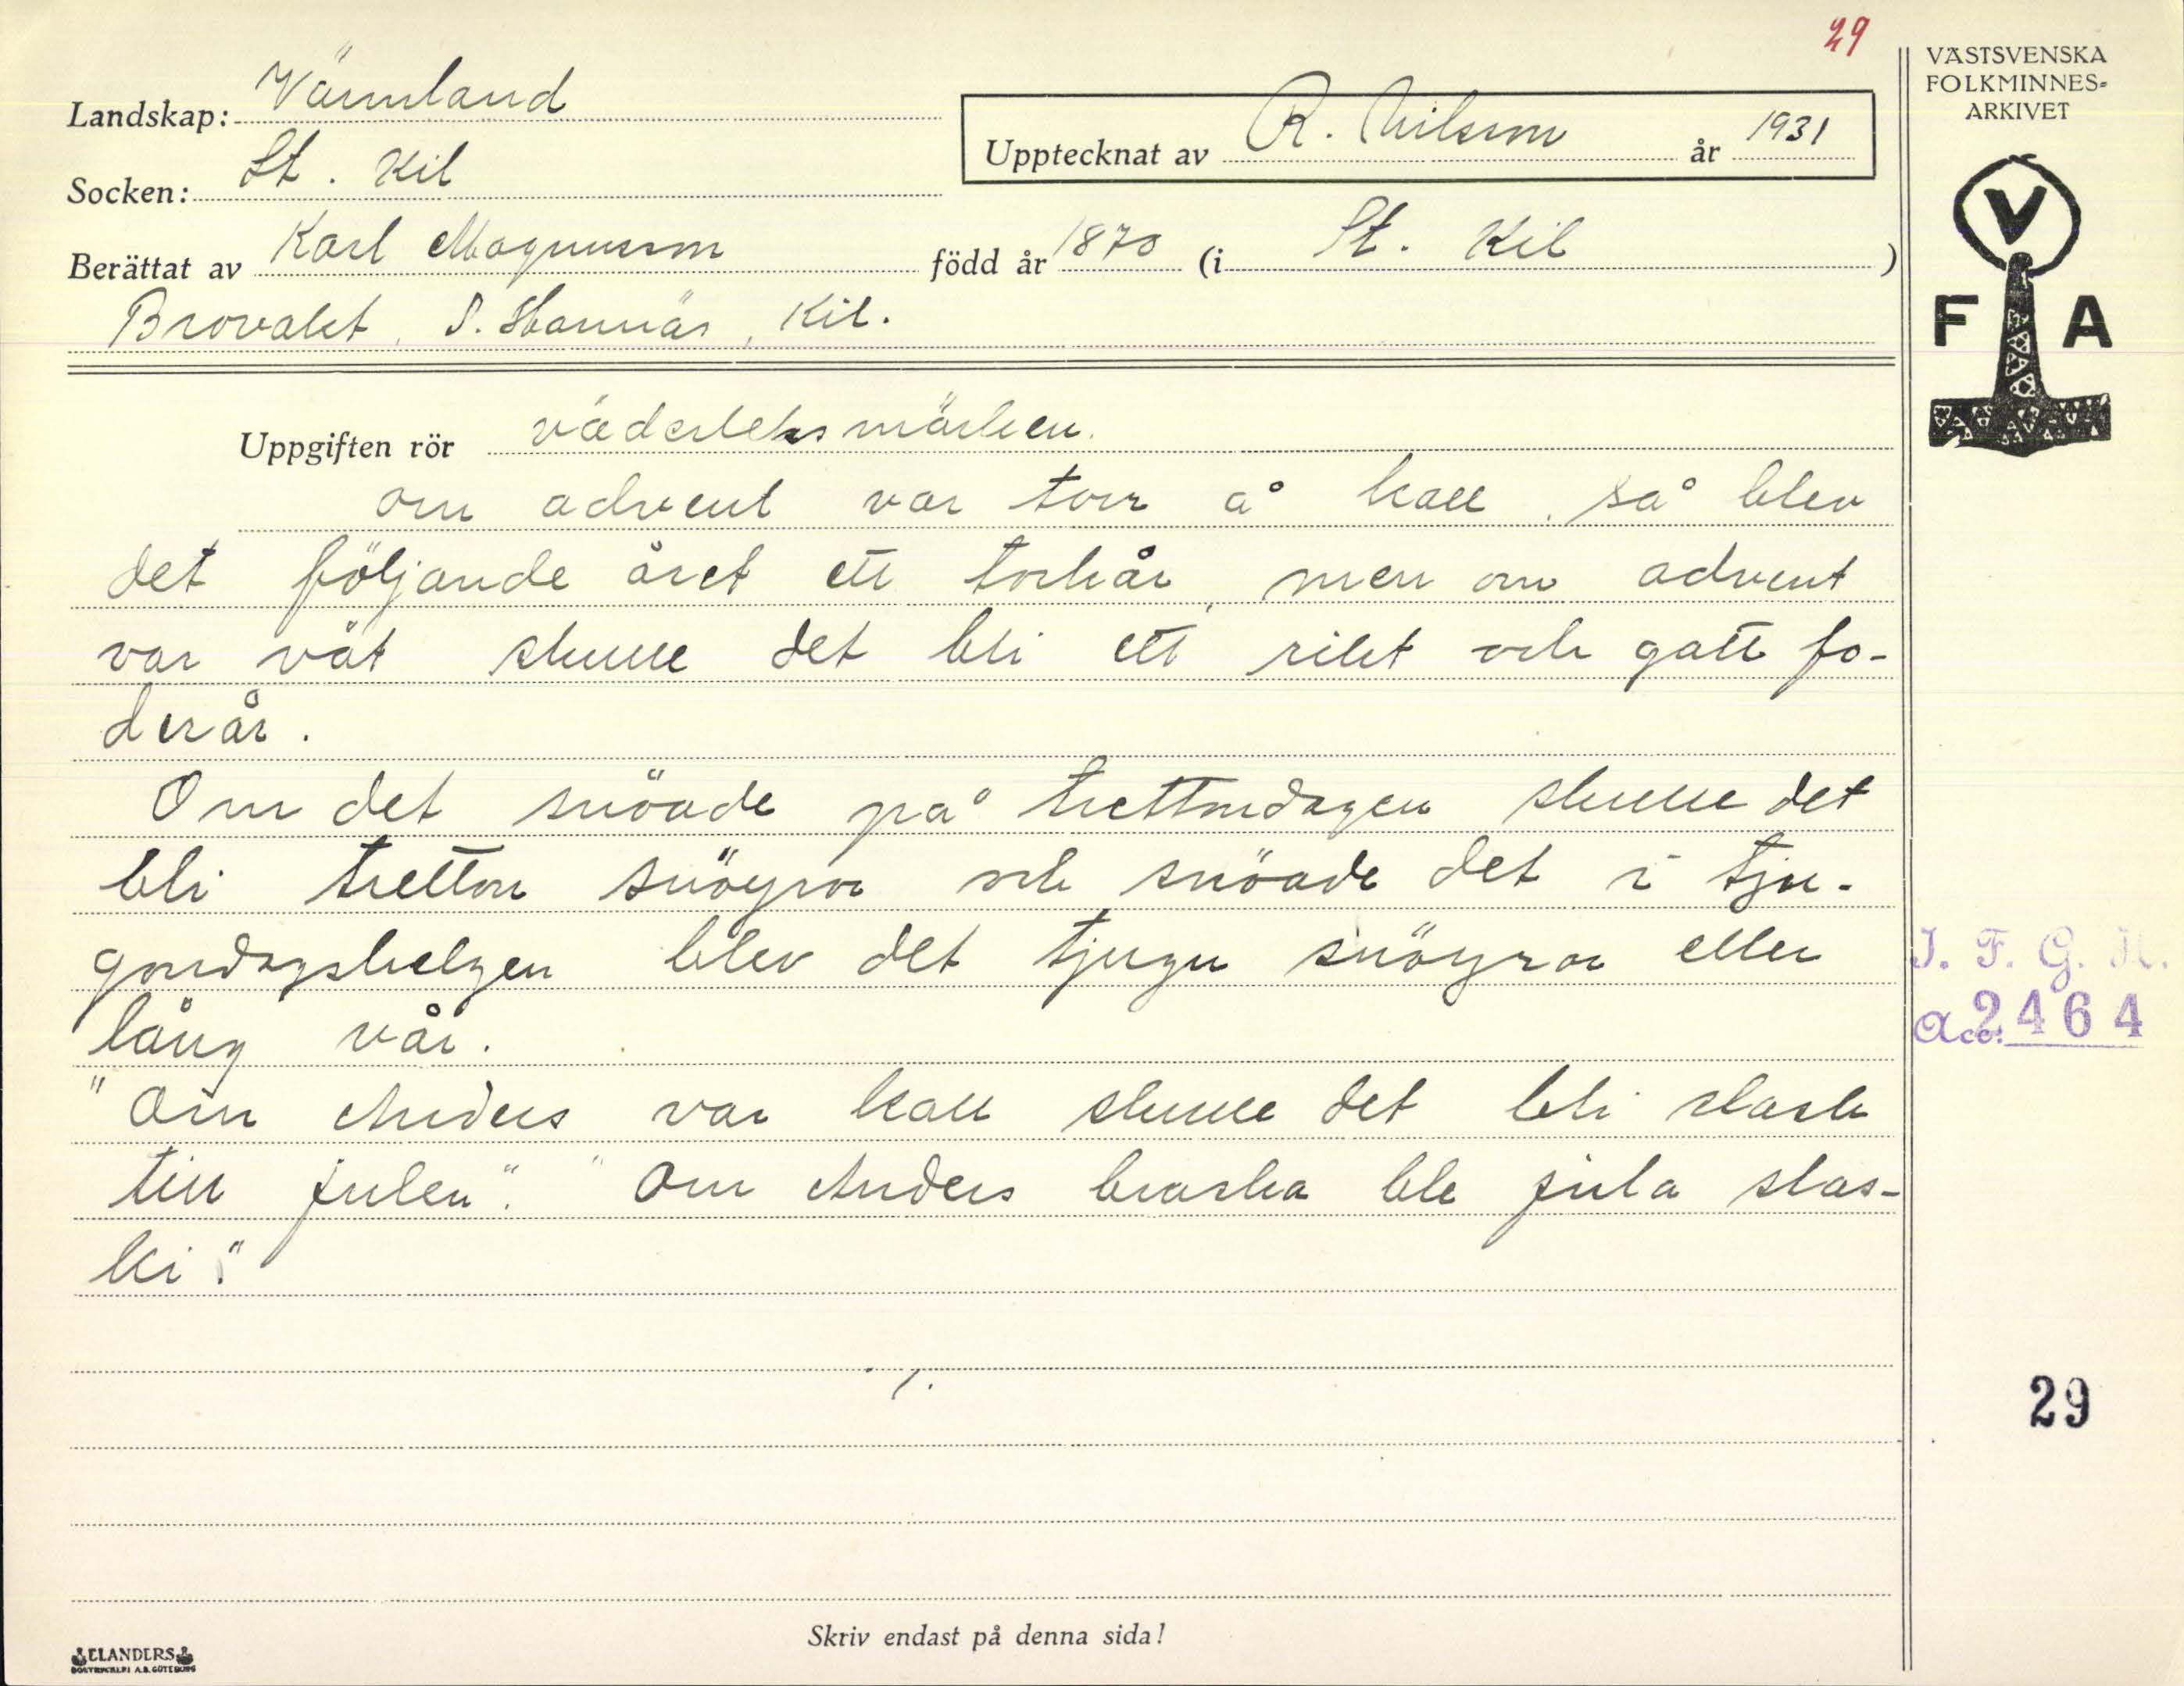 29
VÄSTSVENSKA
FOLKMINNES-
ARKIVET
Landskap: Värmland
Upptecknat av R. Nilsson år 1931
Socken: St. Kil
Berättat av Karl Magnusson född år 1870 (i St. Kil)
Brovalet, S. Hannäs, Kil.
V
F A
Uppgiften rör väderleksmärken.
om advent var torr å kall, så blev
det följande året ett torkår, men om advent
var våt skulle det bli ett rikt och gått fo-
derår.
Om det snöade på trettondagen skulle det
bli tretton snöyror och snöade det i tju-
gondagshelgen blev det tjugu snöyror eller
lång vår.
"Om Anders var kall skulle det bli slask
till julen". "Om Anders braska ble jula slas-
ki."
J. F. G. H.
Acc. 2464
29
Skriv endast på denna sida!
ELANDERS
BOKTRYCKERI A.B. GÖTEBORG